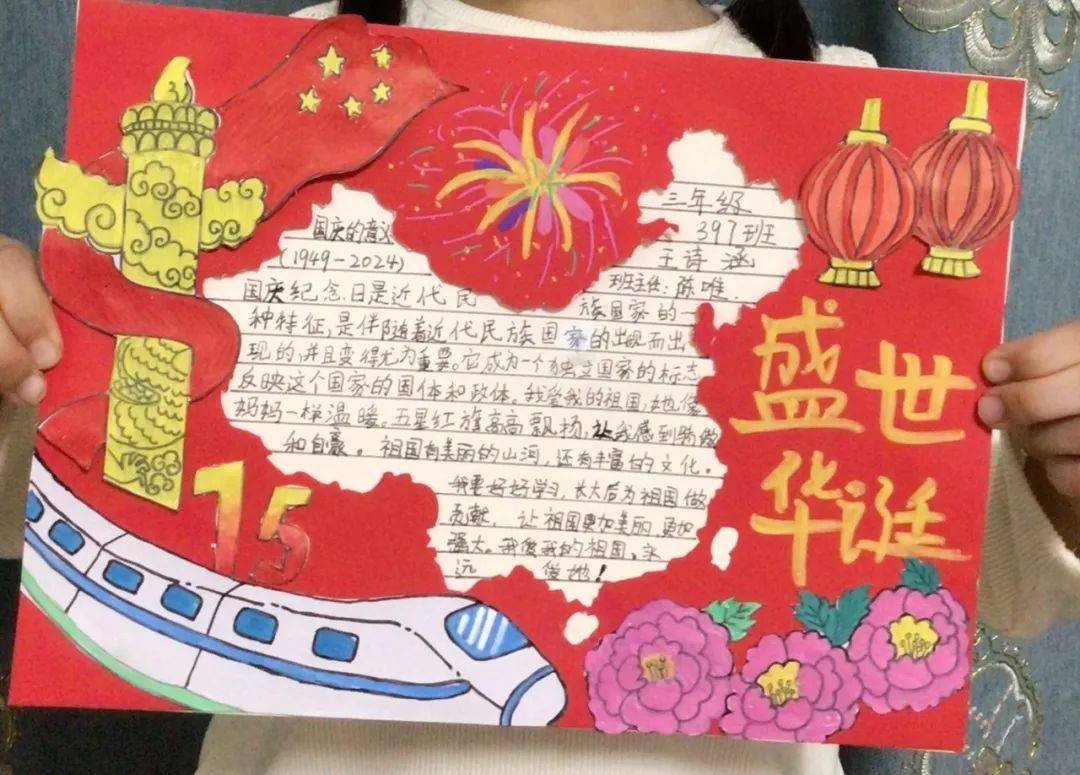 国庆的意义
(1949-2024)
三年级
397班
王诗涵
班主任:陈唯.
国庆纪念日是近代民 族国家的一
种特征,是伴随着近代民族国家的出现而出
现的,并且变得尤为重要。它成为一个独立国家的标志
反映这个国家的国体和政体。我爱我的祖国,她像
妈妈一样温暖。五星红旗高高飘扬,让我感到骄傲
和自豪。祖国有美丽的山河,还有丰富的文化。
我要好好学习,长大后为祖国做
贡献,让祖国更加美丽更加
强大。我爱我的祖国,永
远 爱她!
盛世
华诞
75